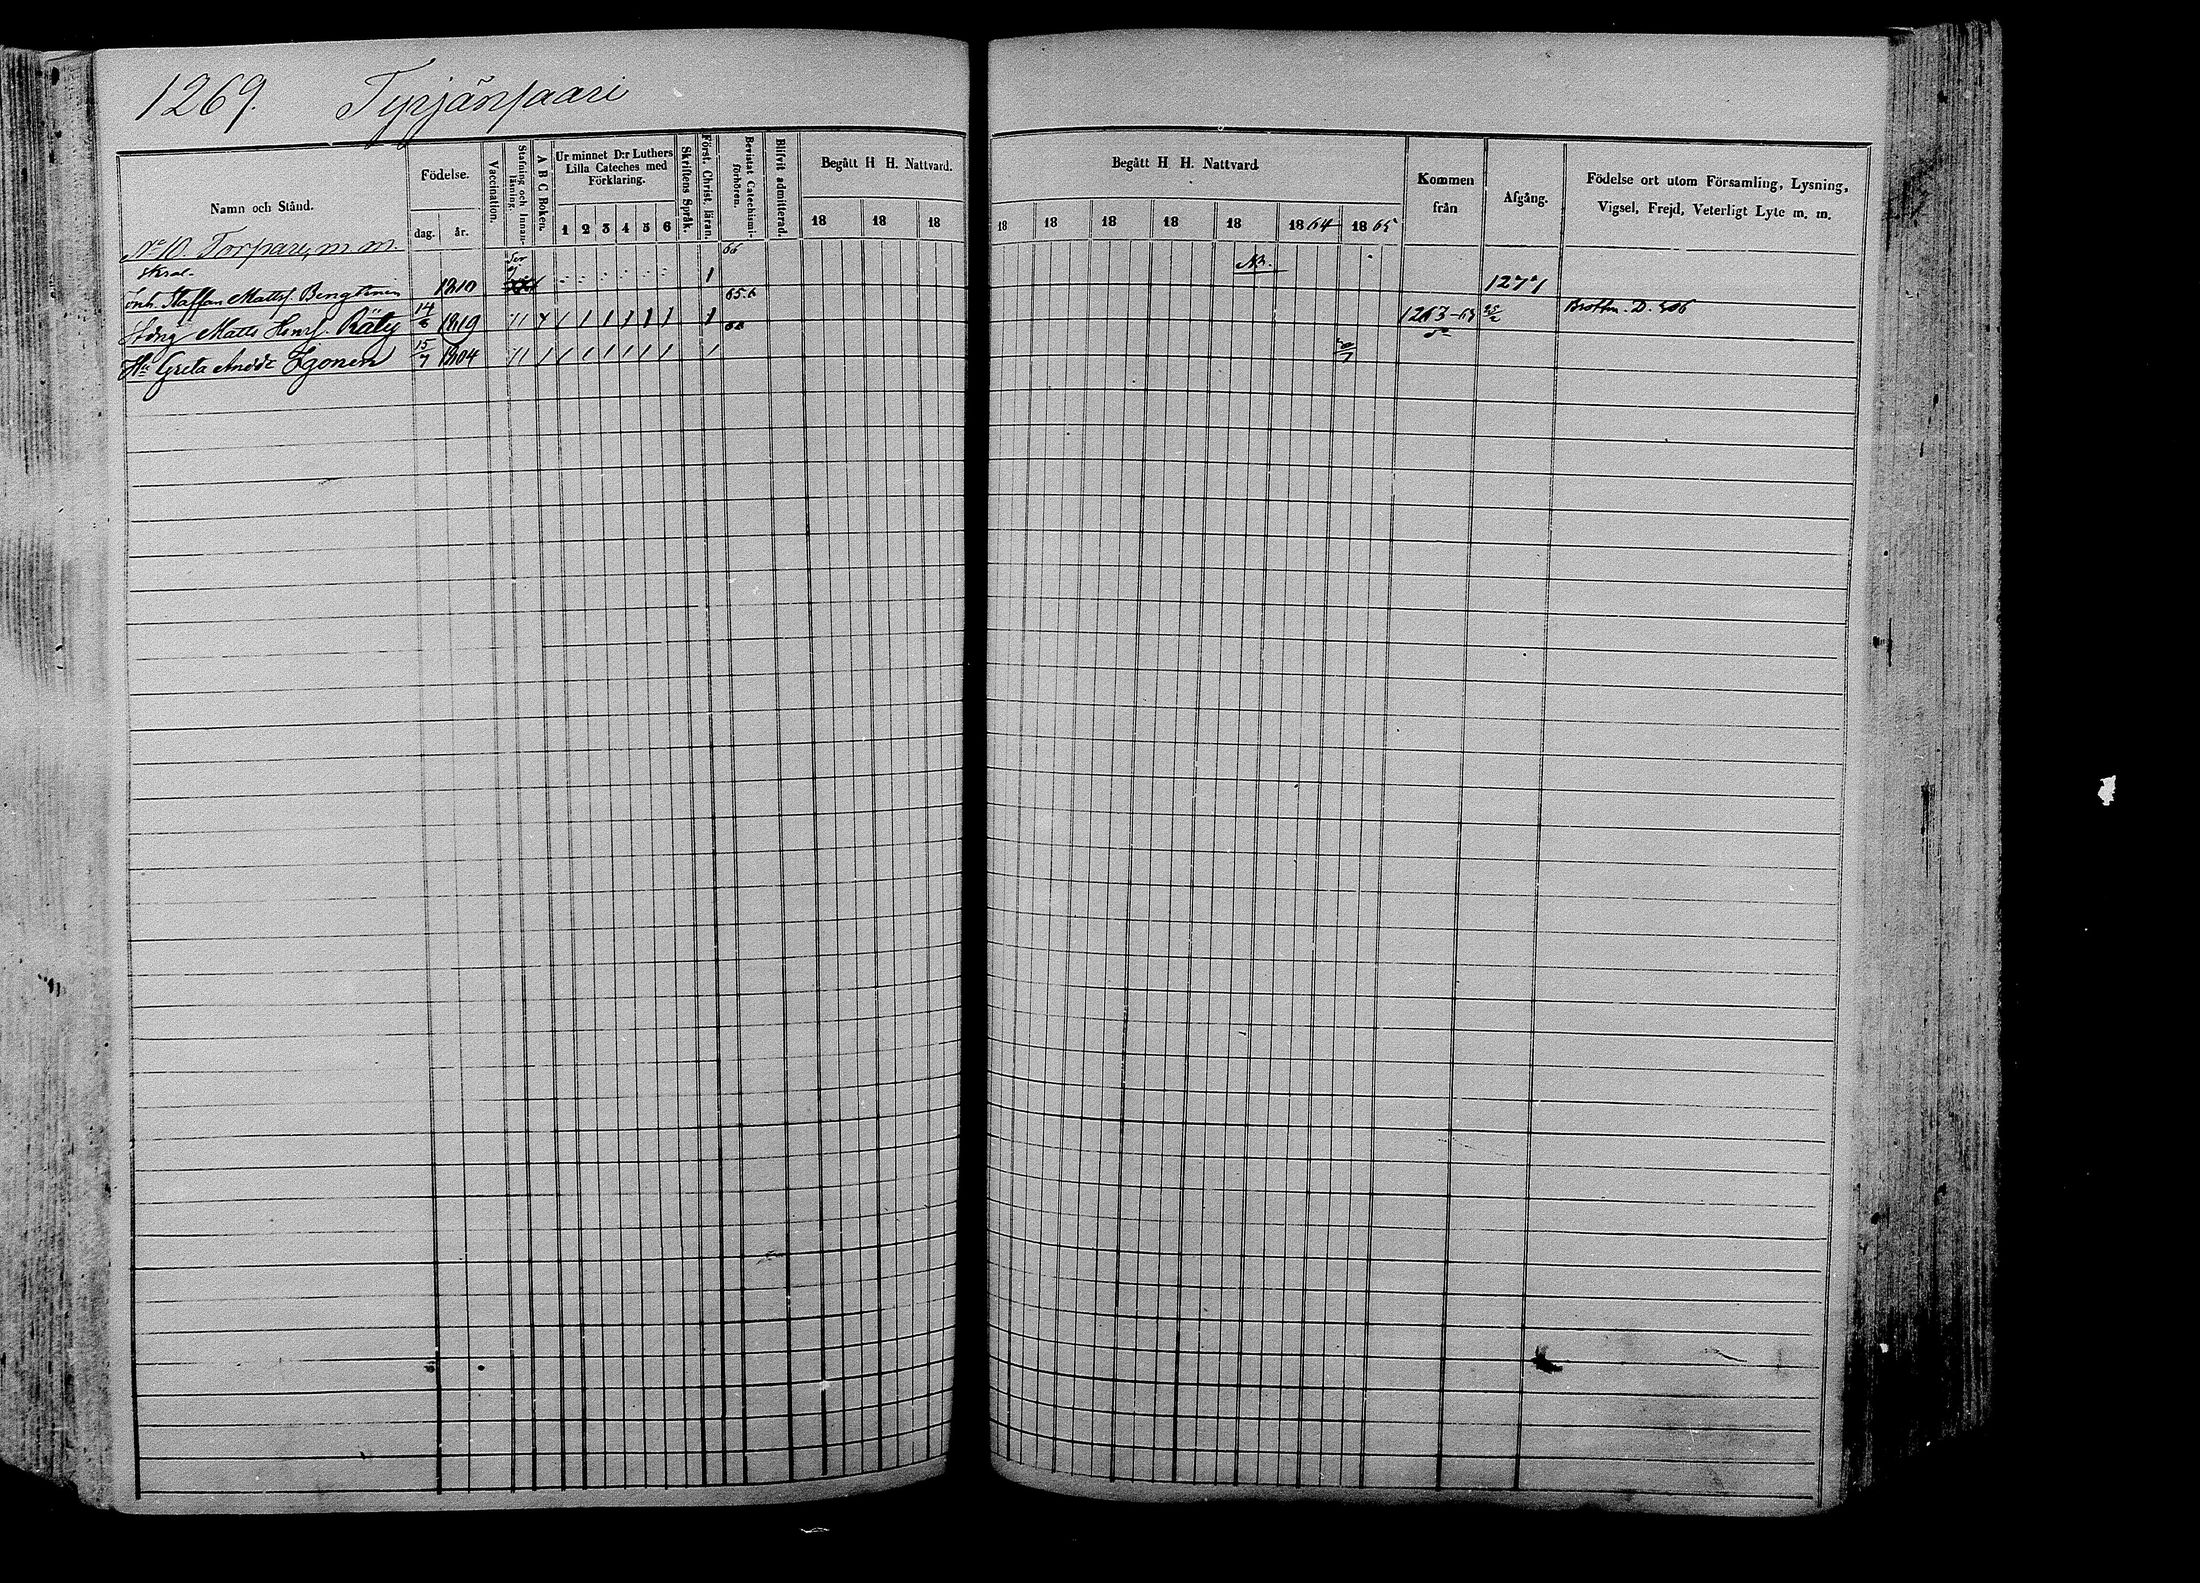 1269. Tyrjänsaari
Namn och Stånd. Födelse. dag. år. Vaccination. Stafning och Innanläsning. A B C Boken. Ur minnet D:r Luthers Lilla Cateches med Förklaring. 1 2 3 4 5 6 Skriftens Språk. Först. Christ. läran. Bevistat Catechismiförhören. Blifvit admitterad. Begått H H. Nattvard. 18 18 18
Begått H H. Nattvard 18 18 18 18 18 1864 1865 Kommen från Afgång. Födelse ort utom Församling, Lysning, Vigsel, Frejd, Veterligt Lyte m. m.
No 10. Torpare, m. m. 66
Inh. Staffan Matts. Bengtinen 1810 1 1277
65.6
Matts Henrs. Räty 14/6 1819 11 1 1 1 1 1 1 1 1263-63 25/2 D. 506
Hu Greta Andsdr Igonen 15/7 1804 11 1 1 1 1 1 1 1 1